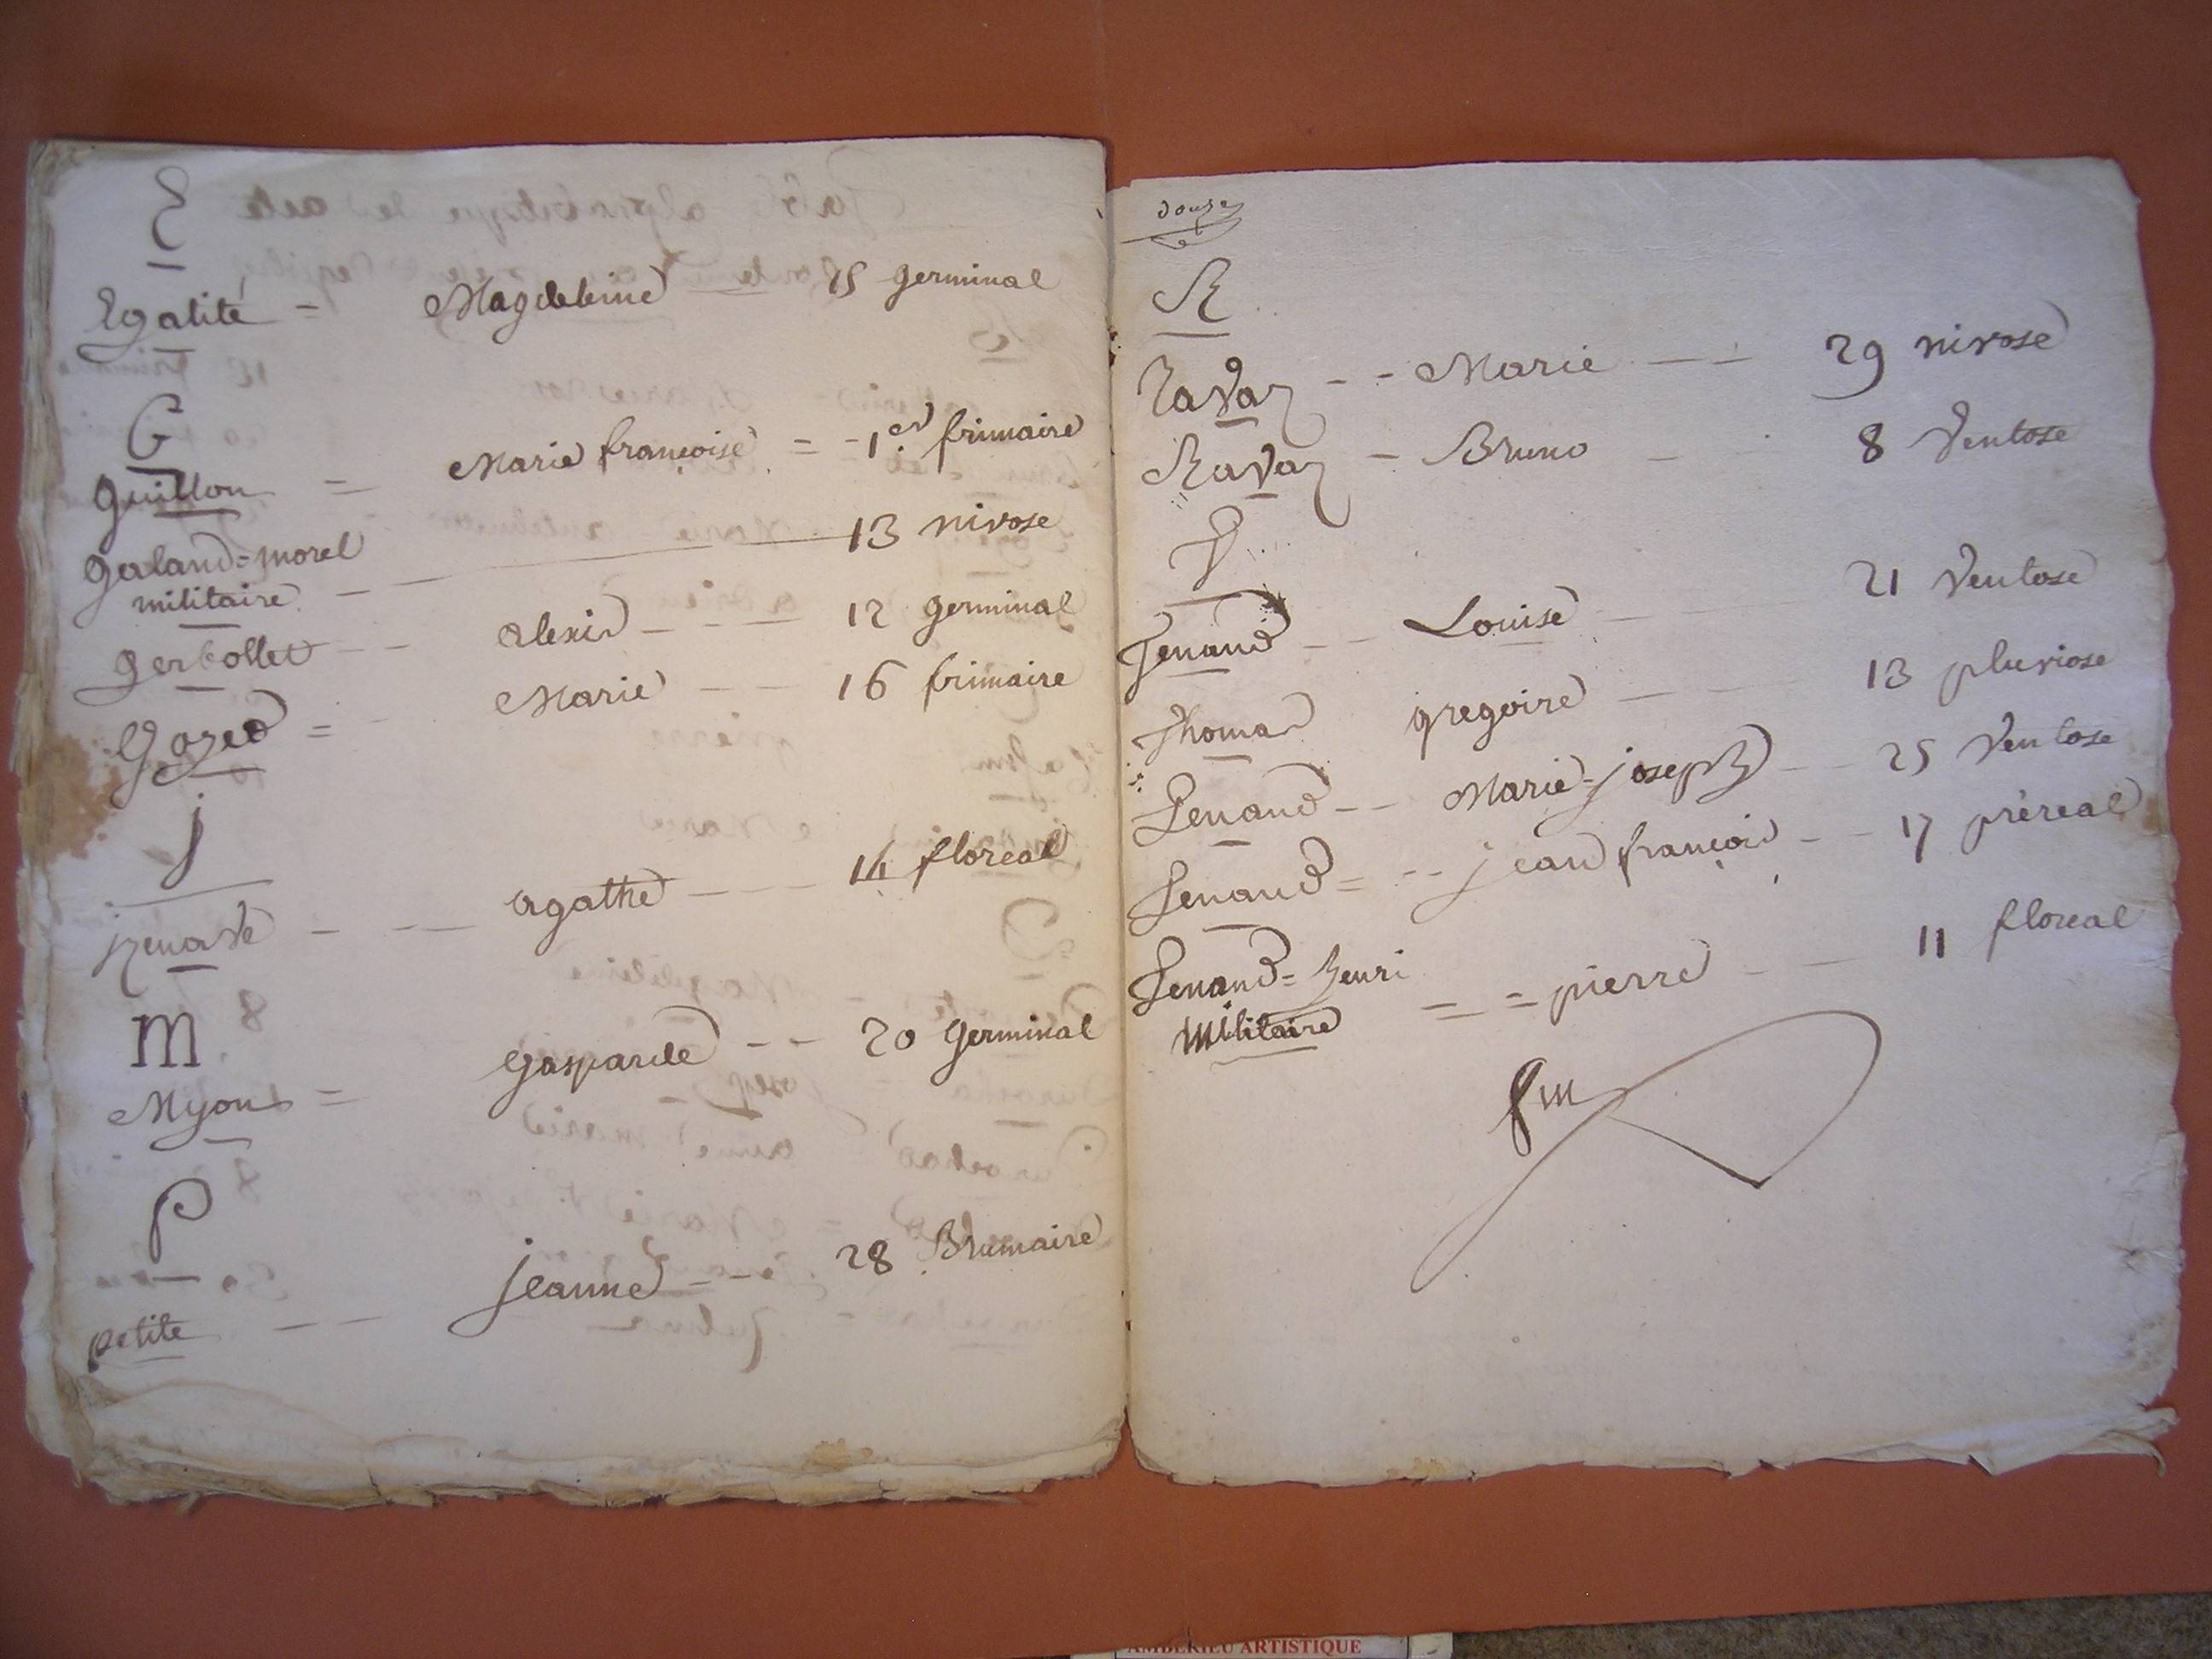 E
Egalité = Magdeleine 15 germinal
G
guillon = Marie françoise = 1.er frimaire
galand=morel
militaire 13 nivose
gerbollet alexis 12 germinal
gozed = Marie 16 frimaire
j
agathe 14 floreal
M
Myon = gasparde 20 germinal
P
petite jeanne 28 Brumaire
douze
R
Ravaz Marie 29 nivose
Ravaz Bruno 8 Ventose
T
Tenand Louise 21 Ventose
Thomas gregoire 13 pluviose
Tenand Marie-joseph 25 Ventose
Tenand = jean françois 17 préreal
Tenand=henri
Militaire = = pierre 11 floreal
AMBERIEU ARTISTIQUE